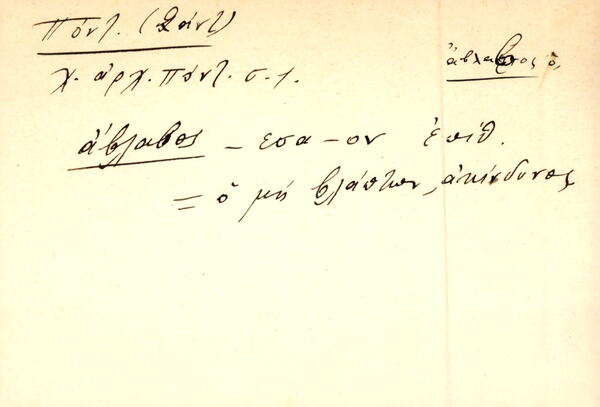 Πόντ. (Σάντ)
χ. ἀρχ. Πόντ. σ. 1.
ἄβλαβος ὁ,
ἄβλαβος -εσα -ον ἐπίθ.
= ὁ μή βλάπτων, ἀκίνδυνος